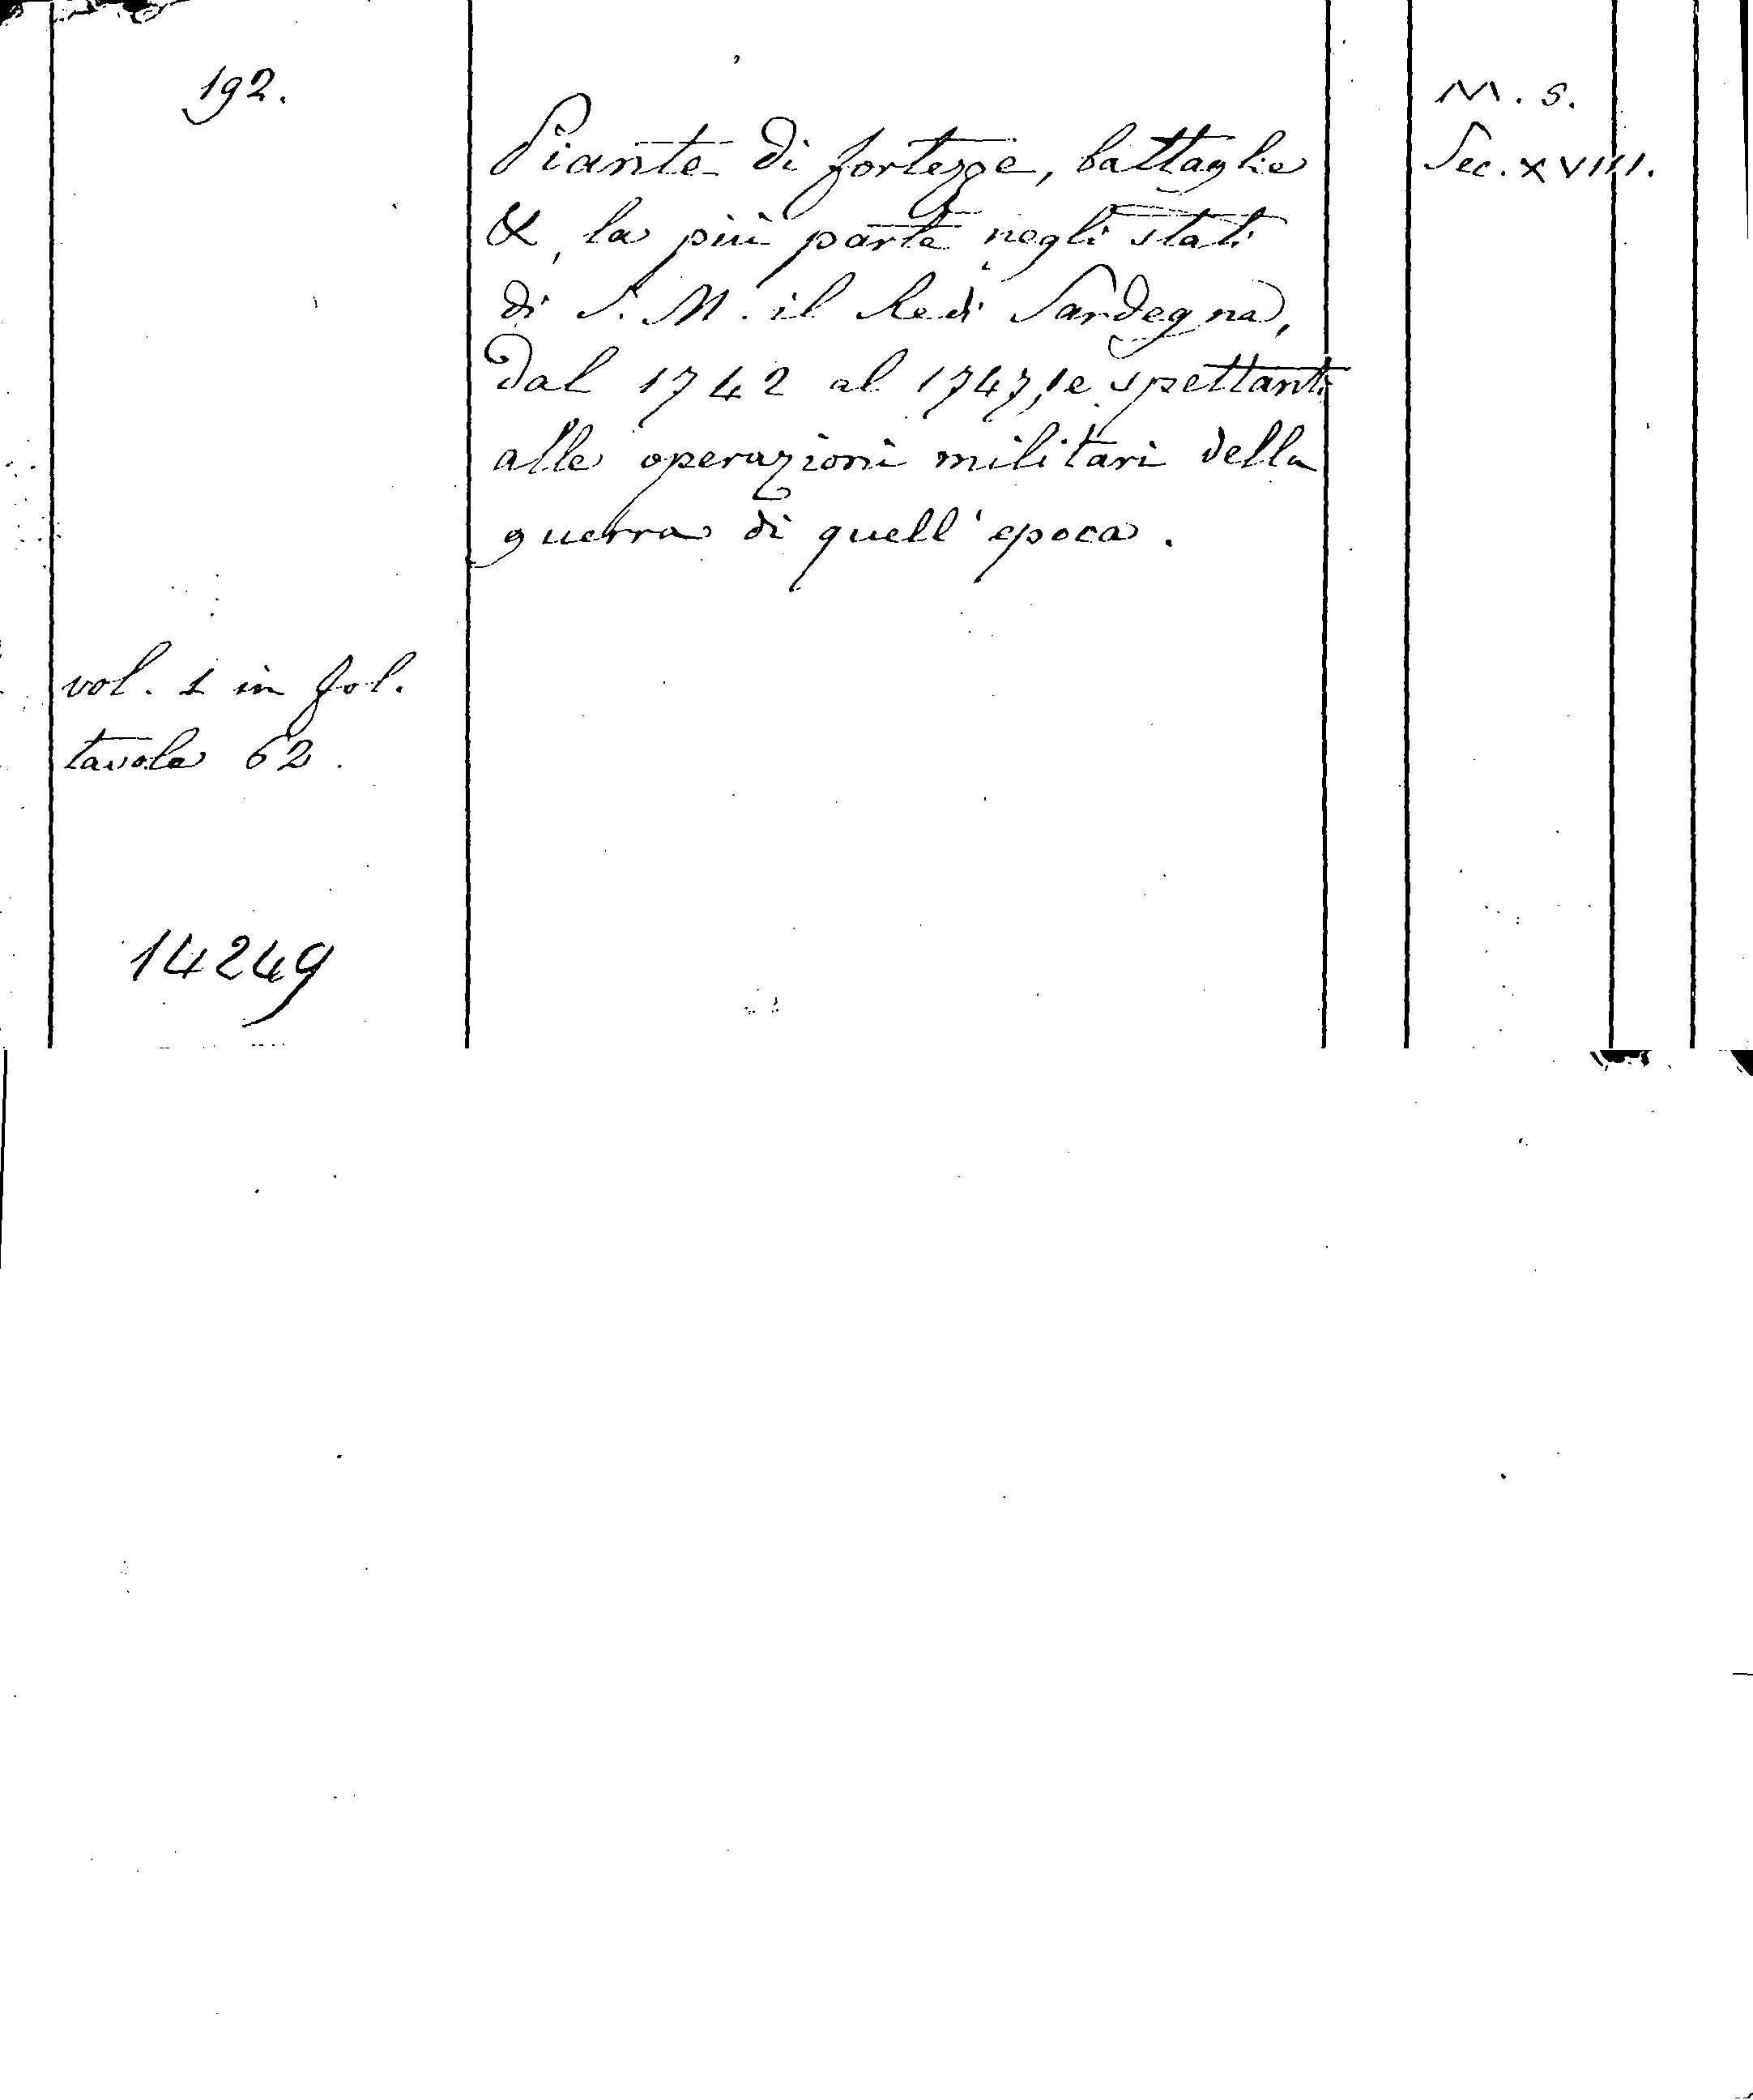 192.
Piante di fortezze, battaglie
&, la più parte negli stati
di S. M. il Re di Sardegna,
dal 1742 al 1747, e spettanti
alle operazioni militari della
guerra di quell'epoca.
M. S.
Sec. XVIII.
vol. 1 in fol.
tavole 62.
14249